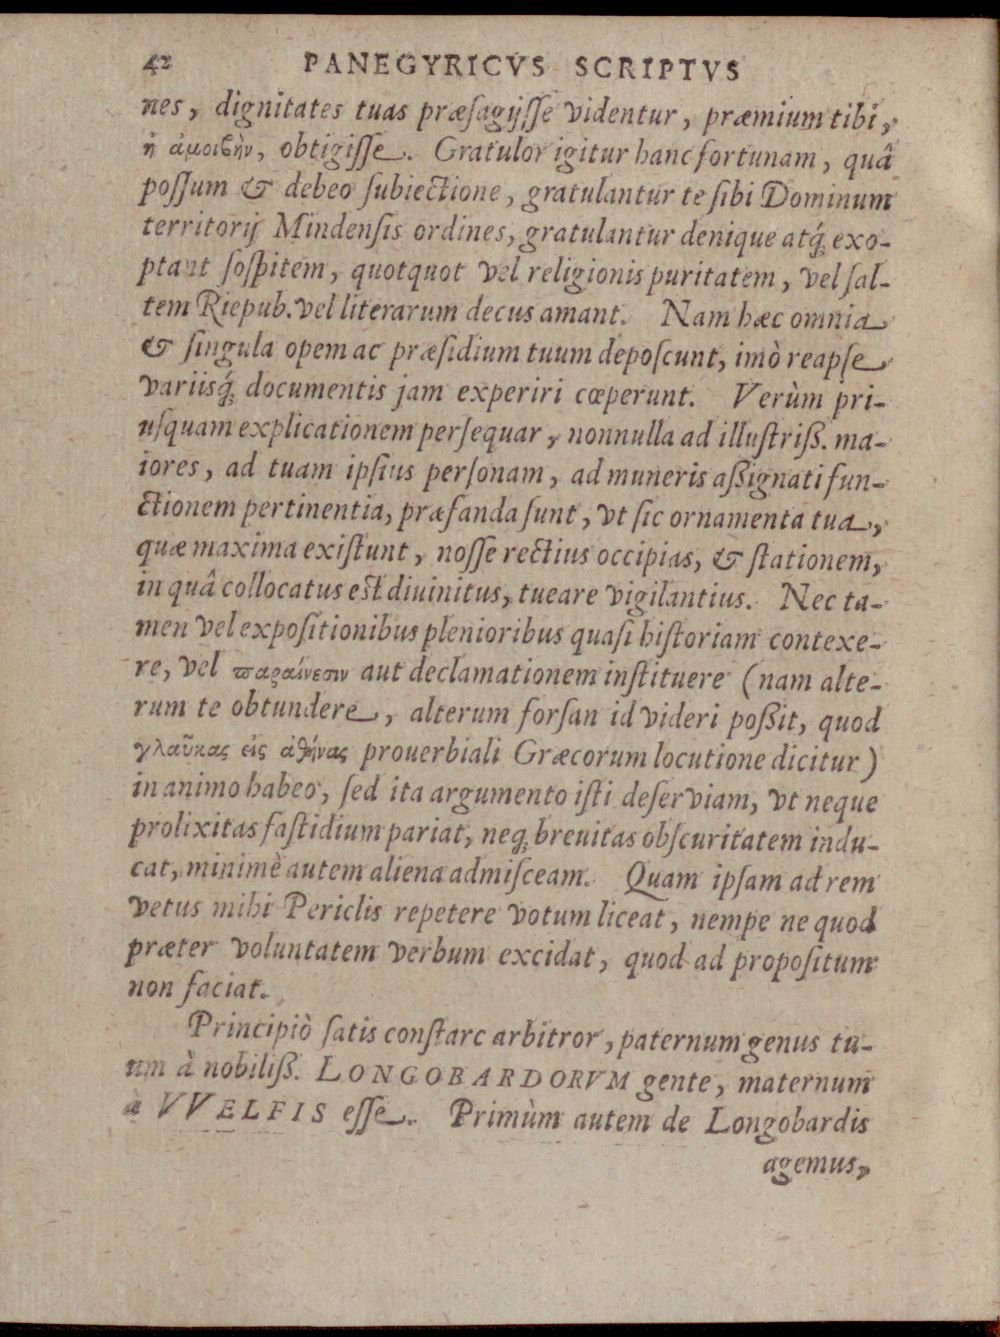 42 PANEGYRICVS SCRIPTVS
nes, dignitates tuas præſagijſſe videntur, præmium tibi,
ἢ ἀμοιβὴν, obtigiſſe. Gratulor igitur hanc fortunam, quâ
poſſum & debeo ſubiectione, gratulantur te ſibi Dominum
territorij Mindenſis ordines, gratulantur denique atq́; exo-
ptant ſoſpitem, quotquot vel religionis puritatem, vel ſal-
tem Riepub. vel literarum decus amant. Nam hæc omnia
& ſingula opem ac præſidium tuum depoſcunt, imò reapſe
variisq́; documentis jam experiri cœperunt. Verùm pri-
uſquam explicationem perſequar, nonnulla ad illuſtriß. ma-
iores, ad tuam ipſius perſonam, ad muneris aßignati fun-
ctionem pertinentia, præfanda ſunt, vt ſic ornamenta tua,
quæ maxima exiſtunt, noſſe rectius occipias, & ſtationem,
in quâ collocatus est diuinitus, tueare vigilantius. Nec ta-
men vel expoſitionibus plenioribus quaſi hiſtoriam contexe-
re, vel παραίνεσιν aut declamationem inſtituere (nam alte-
rum te obtundere, alterum forſan id videri poßit, quod
γλαῦκας εἰς ἀθήνας prouerbiali Græcorum locutione dicitur)
in animo habeo, ſed ita argumento iſti deſerviam, vt neque
prolixitas faſtidium pariat, neq; breuitas obſcuritatem indu-
cat, minimè autem aliena admiſceam. Quam ipſam ad rem
vetus mihi Periclis repetere votum liceat, nempe ne quod
præter voluntatem verbum excidat, quod ad propoſitum
non faciat.
Principiò ſatis conſtare arbitror, paternum genus tu-
um à nobiliß. LONGOBARDORVM gente, maternum
à VVELFIS eſſe. Primùm autem de Longobardis
agemus,